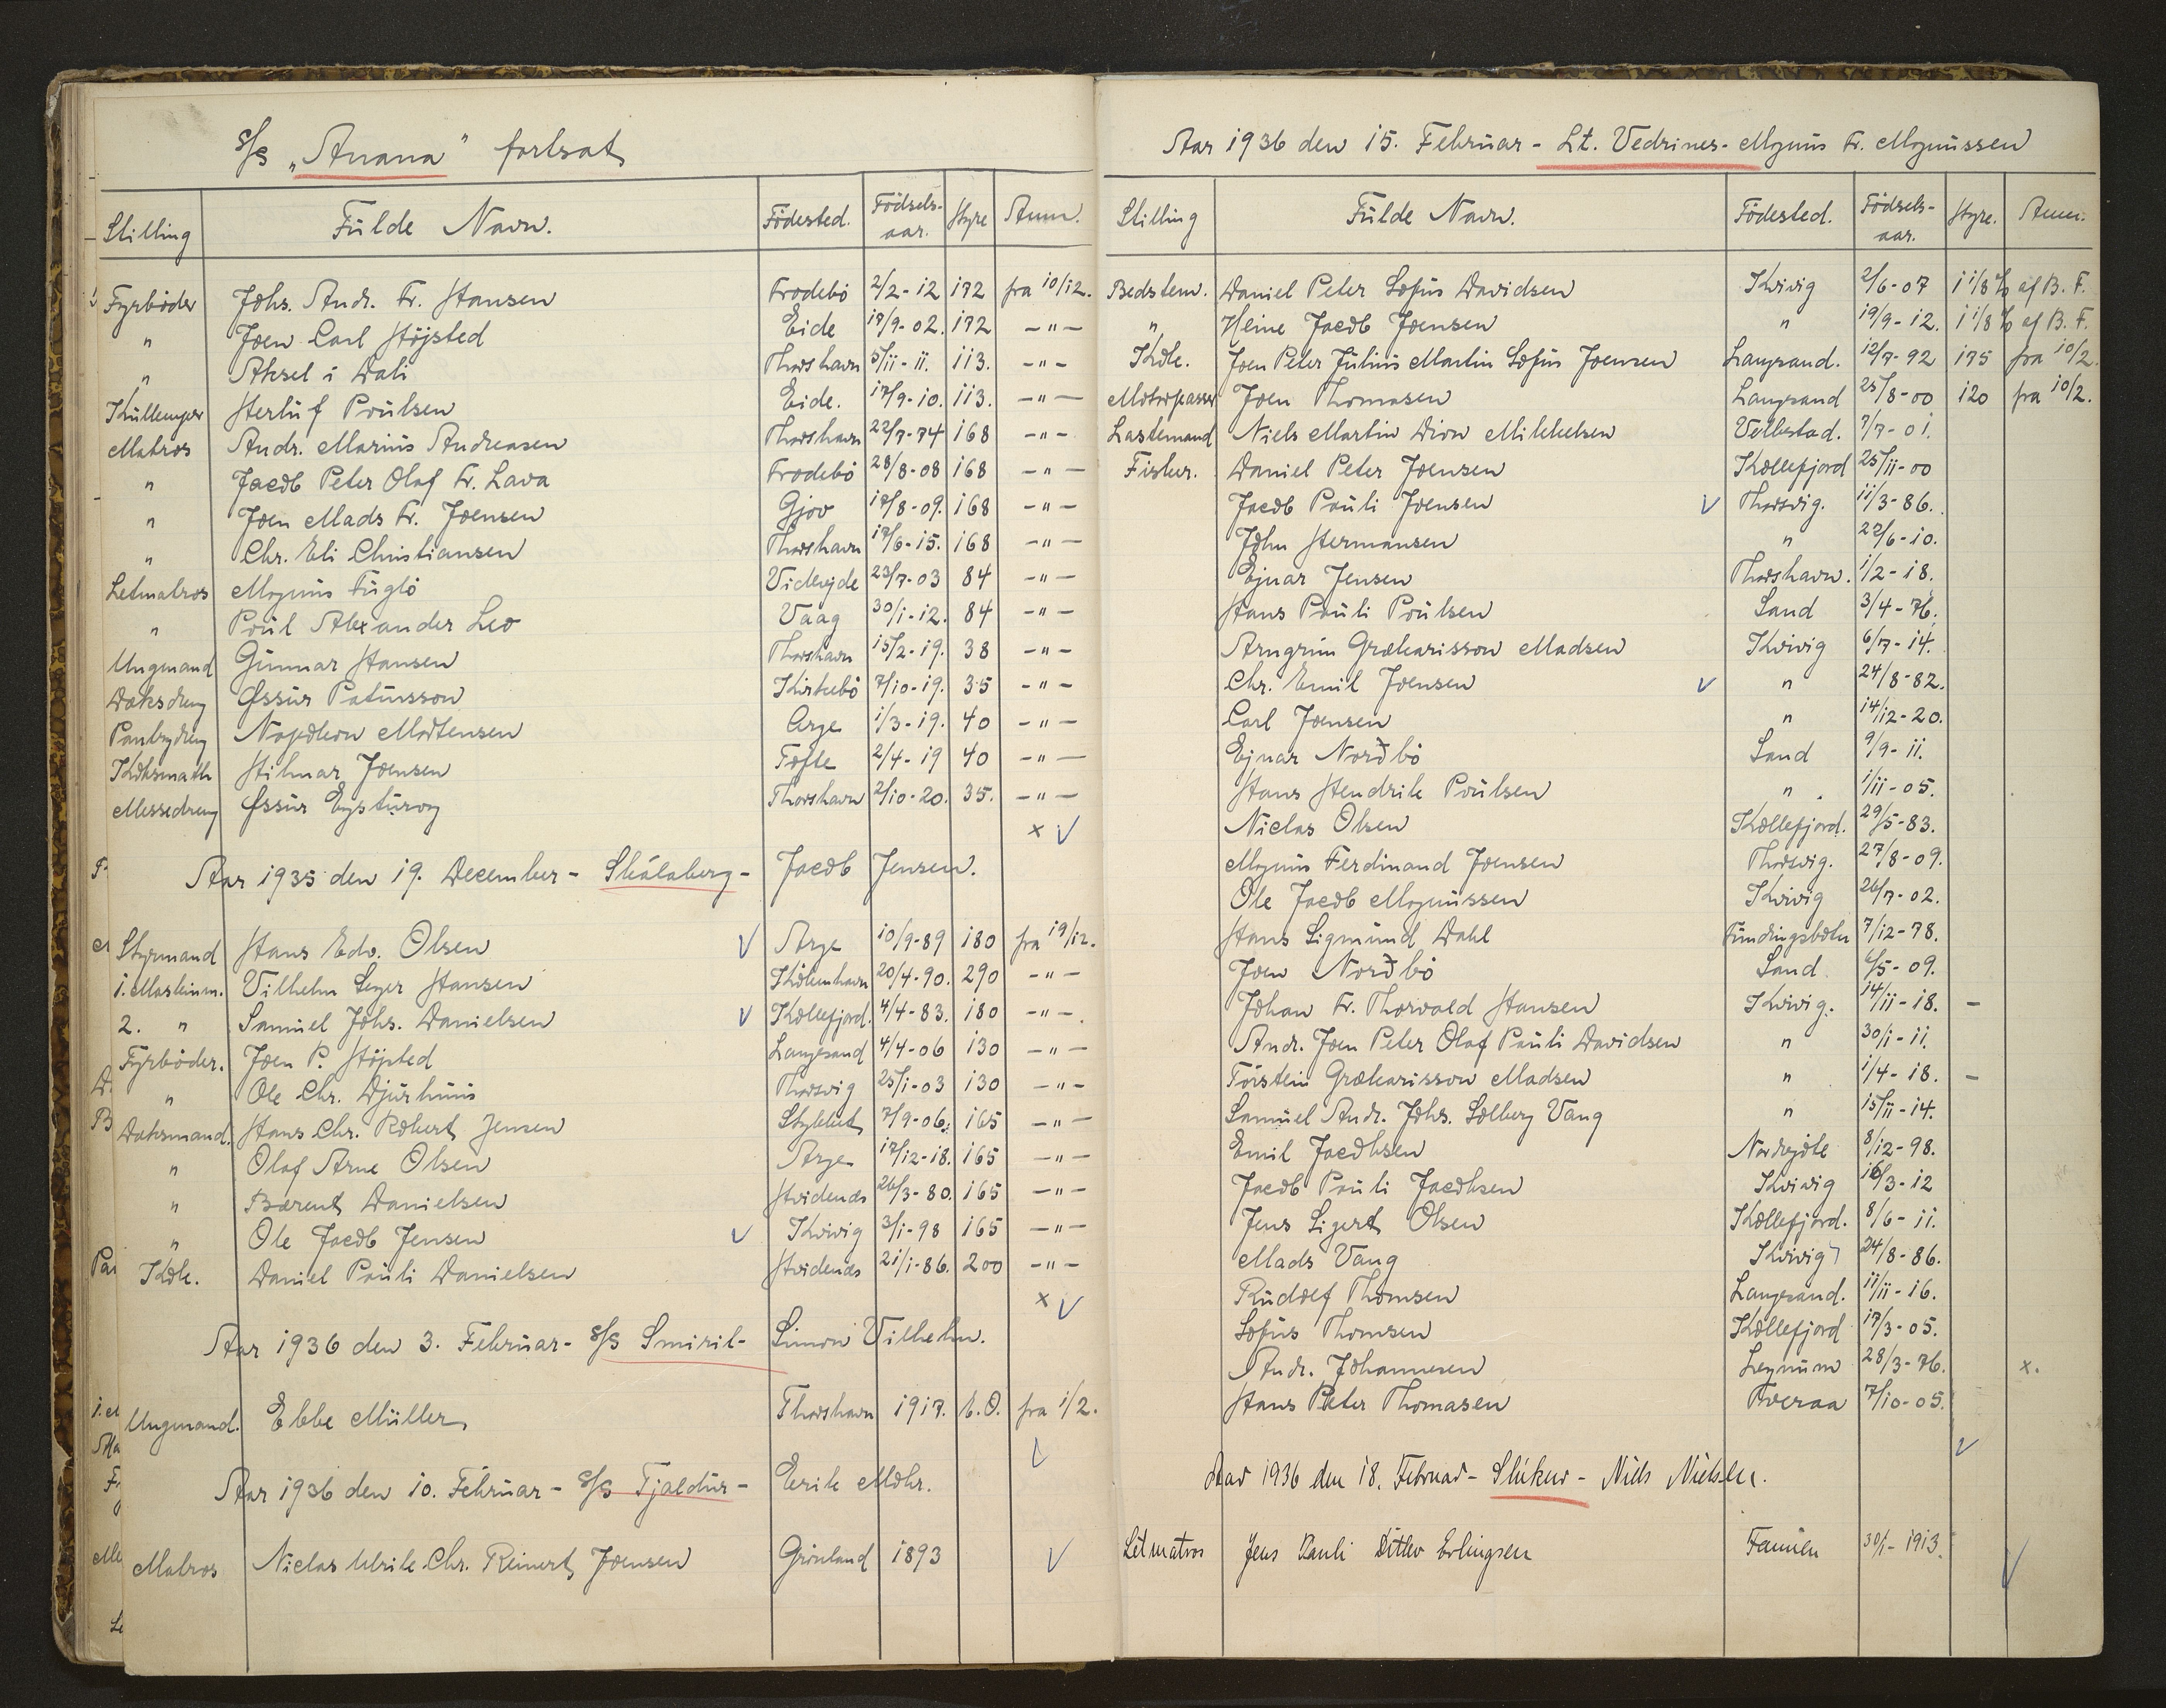 s/s „Anana" fortsat
Stilling Fulde Navn. Födested. Födsels-aar. Hyre Anm.
Fyrböder Johs. Andr. Fr. Hansen Frodebö 2/2-12 172 fra 10/12.
" Joen Carl Höjsted Eide 17/9-02. 172 -"-
" Aksel i Dali Thorshavn 5/11-11. 113. -"-
Kullemper Herluf Poulsen Eide. 17/9-10. 113. -"-
Matros Andr. Marius Andreasen Thorshavn 22/7-74 168 -"-
" Jacob Peter Olaf Fr. Lava Frodebö 28/8-08 168 -"-
" Joen Mads Fr. Joensen Gjov 17/8-09. 168 -"-
" Chr. Eli Christiansen Thorshavn 17/6-15. 168 -"-
Letmatros Magnus Fuglö Videjde 23/7-03 84 -"-
" Poul Alexander Leo Vaag 30/1-12. 84 -"-
Ungmand Gunnar Hansen Thorshavn 15/2-19. 38 -"-
Dæksdreng Øssur Patursson Kirkebö 7/10-19. 35 -"-
Pantrydreng Napoleon Mortensen Arge 1/3-19. 40 -"-
Koksmath Hilmar Joensen Tofte 2/4-19 40 -"-
Messedreng Øssur Eysturoy Thorshavn 2/10-20. 35. -"-
x ✓
Aar 1935 den 19. December - Skálaberg - Jacob Jensen.
Styrmand Hans Edv. Olsen ✓ Arge 10/9-89 180 fra 19/12.
1. Maskinm. Vilhelm Seger Hansen Kobenhavn 20/4-90. 290 -"-
2. " Samuel Johs. Danielsen ✓ Kollefjord. 4/4-83. 180 -"-
Fyrböder. Joen P. Höjsted Langesand 4/4-06 130 -"-
" Ole Chr. Djurhuus Thorsvig 25/1-03 130 -"-
Dæksmand. Hans Chr. Robert Jensen 7/9-06. 165 -"-
" Olaf Arne Olsen Arge 17/12-18. 165 -"-
" Barent Danielsen Hvidenæs 26/3-80. 165 -"-
" Ole Jacob Jensen ✓ Kvivig 3/1-98 165 -"-
Kok. Daniel Pauli Danielsen Hvidenæs 21/1-86. 200 -"-
x ✓
Aar 1936 den 3. Februar - s/s Smiril - Simon Vilhelm.
Ungmand. Ebbe Müller Thorshavn 1917. E.O. fra 1/2.
✓
Aar 1936 den 10. Februar - s/s Tjaldur - Eerik Mohr.
Matros Niclas Ulrik Chr. Reinert Joensen Grönland 1893 ✓
Aar 1936 den 15. Februar - Lt. Vedrines - Magnus Fr. Magnussen
Stilling Fulde Navn. Födested. Födsels-aar. Hyre. Anm.
Bedstem. Daniel Peter Sofus Davidsen Kvivig 2/6-07 1 1/8 % af B. F.
" Heine Jacob Joensen " 19/9-12. 1 1/8 % af B. F.
Kok. Joen Peter Julius Martin Sofus Joensen Langesand. 12/7-92 175 fra 10/2.
Motorpasser Joen Thomasen Langesand 25/8-00 120 fra 10/2.
Lastemand Niels Martin Dion Mikkelsen Velbestad. 7/7-01.
Fisker. Daniel Peter Joensen Kollefjord 25/11-00
Jacob Pauli Joensen ✓ Thorsvig. 11/3-86.
John Hermansen " 22/6-10.
Ejnar Jensen Thorshavn. 1/2-18.
Hans Pauli Poulsen Sand 3/4-76.
Arngrim Grækarisson Madsen Kvivig 6/7-14.
Chr. Emil Joensen ✓ " 24/8-82.
Carl Joensen " 14/12-20.
Ejnar Norðbö Sand 9/9-11.
Hans Hendrik Poulsen " 1/11-05.
Niclas Olsen Kollefjord. 29/5-83.
Magnus Ferdinand Joensen Thorsvig. 27/8-09.
Ole Jacob Magnussen Kvivig 26/7-02.
Hans Sigmund Dahl Fundingsbotn 7/12-78.
Joen Norðbö Sand 6/5-09.
Johan Fr. Thorvald Hansen Kvivig. 14/11-18. -
Andr. Joen Peter Olaf Pauli Davidsen " 30/1-11.
Torstein Grækarisson Madsen " 1/4-18. -
Samuel Andr. Johs. Solberg Vang " 15/11-14.
Emil Jacobsen Nordejde 8/12-98.
Jacob Pauli Jacobsen Kvivig 16/3-12
Jens Sigert Olsen Kollefjord. 8/6-11.
Mads Vang Kvivig 24/8-86.
Rudolf Thomsen Langesand. 11/11-16.
Sofus Thomsen Kollefjord 17/3-05.
Andr. Johannesen Leynum 28/3-76. x.
Hans Peter Thomasen Tveraa 7/10-05.
✓
Aar 1936 den 18. Februar - Slúkur - Niels Nielsen.
Letmatros Jens Pauli Ditlev Erlingsen Famien 30/1-1913. ✓